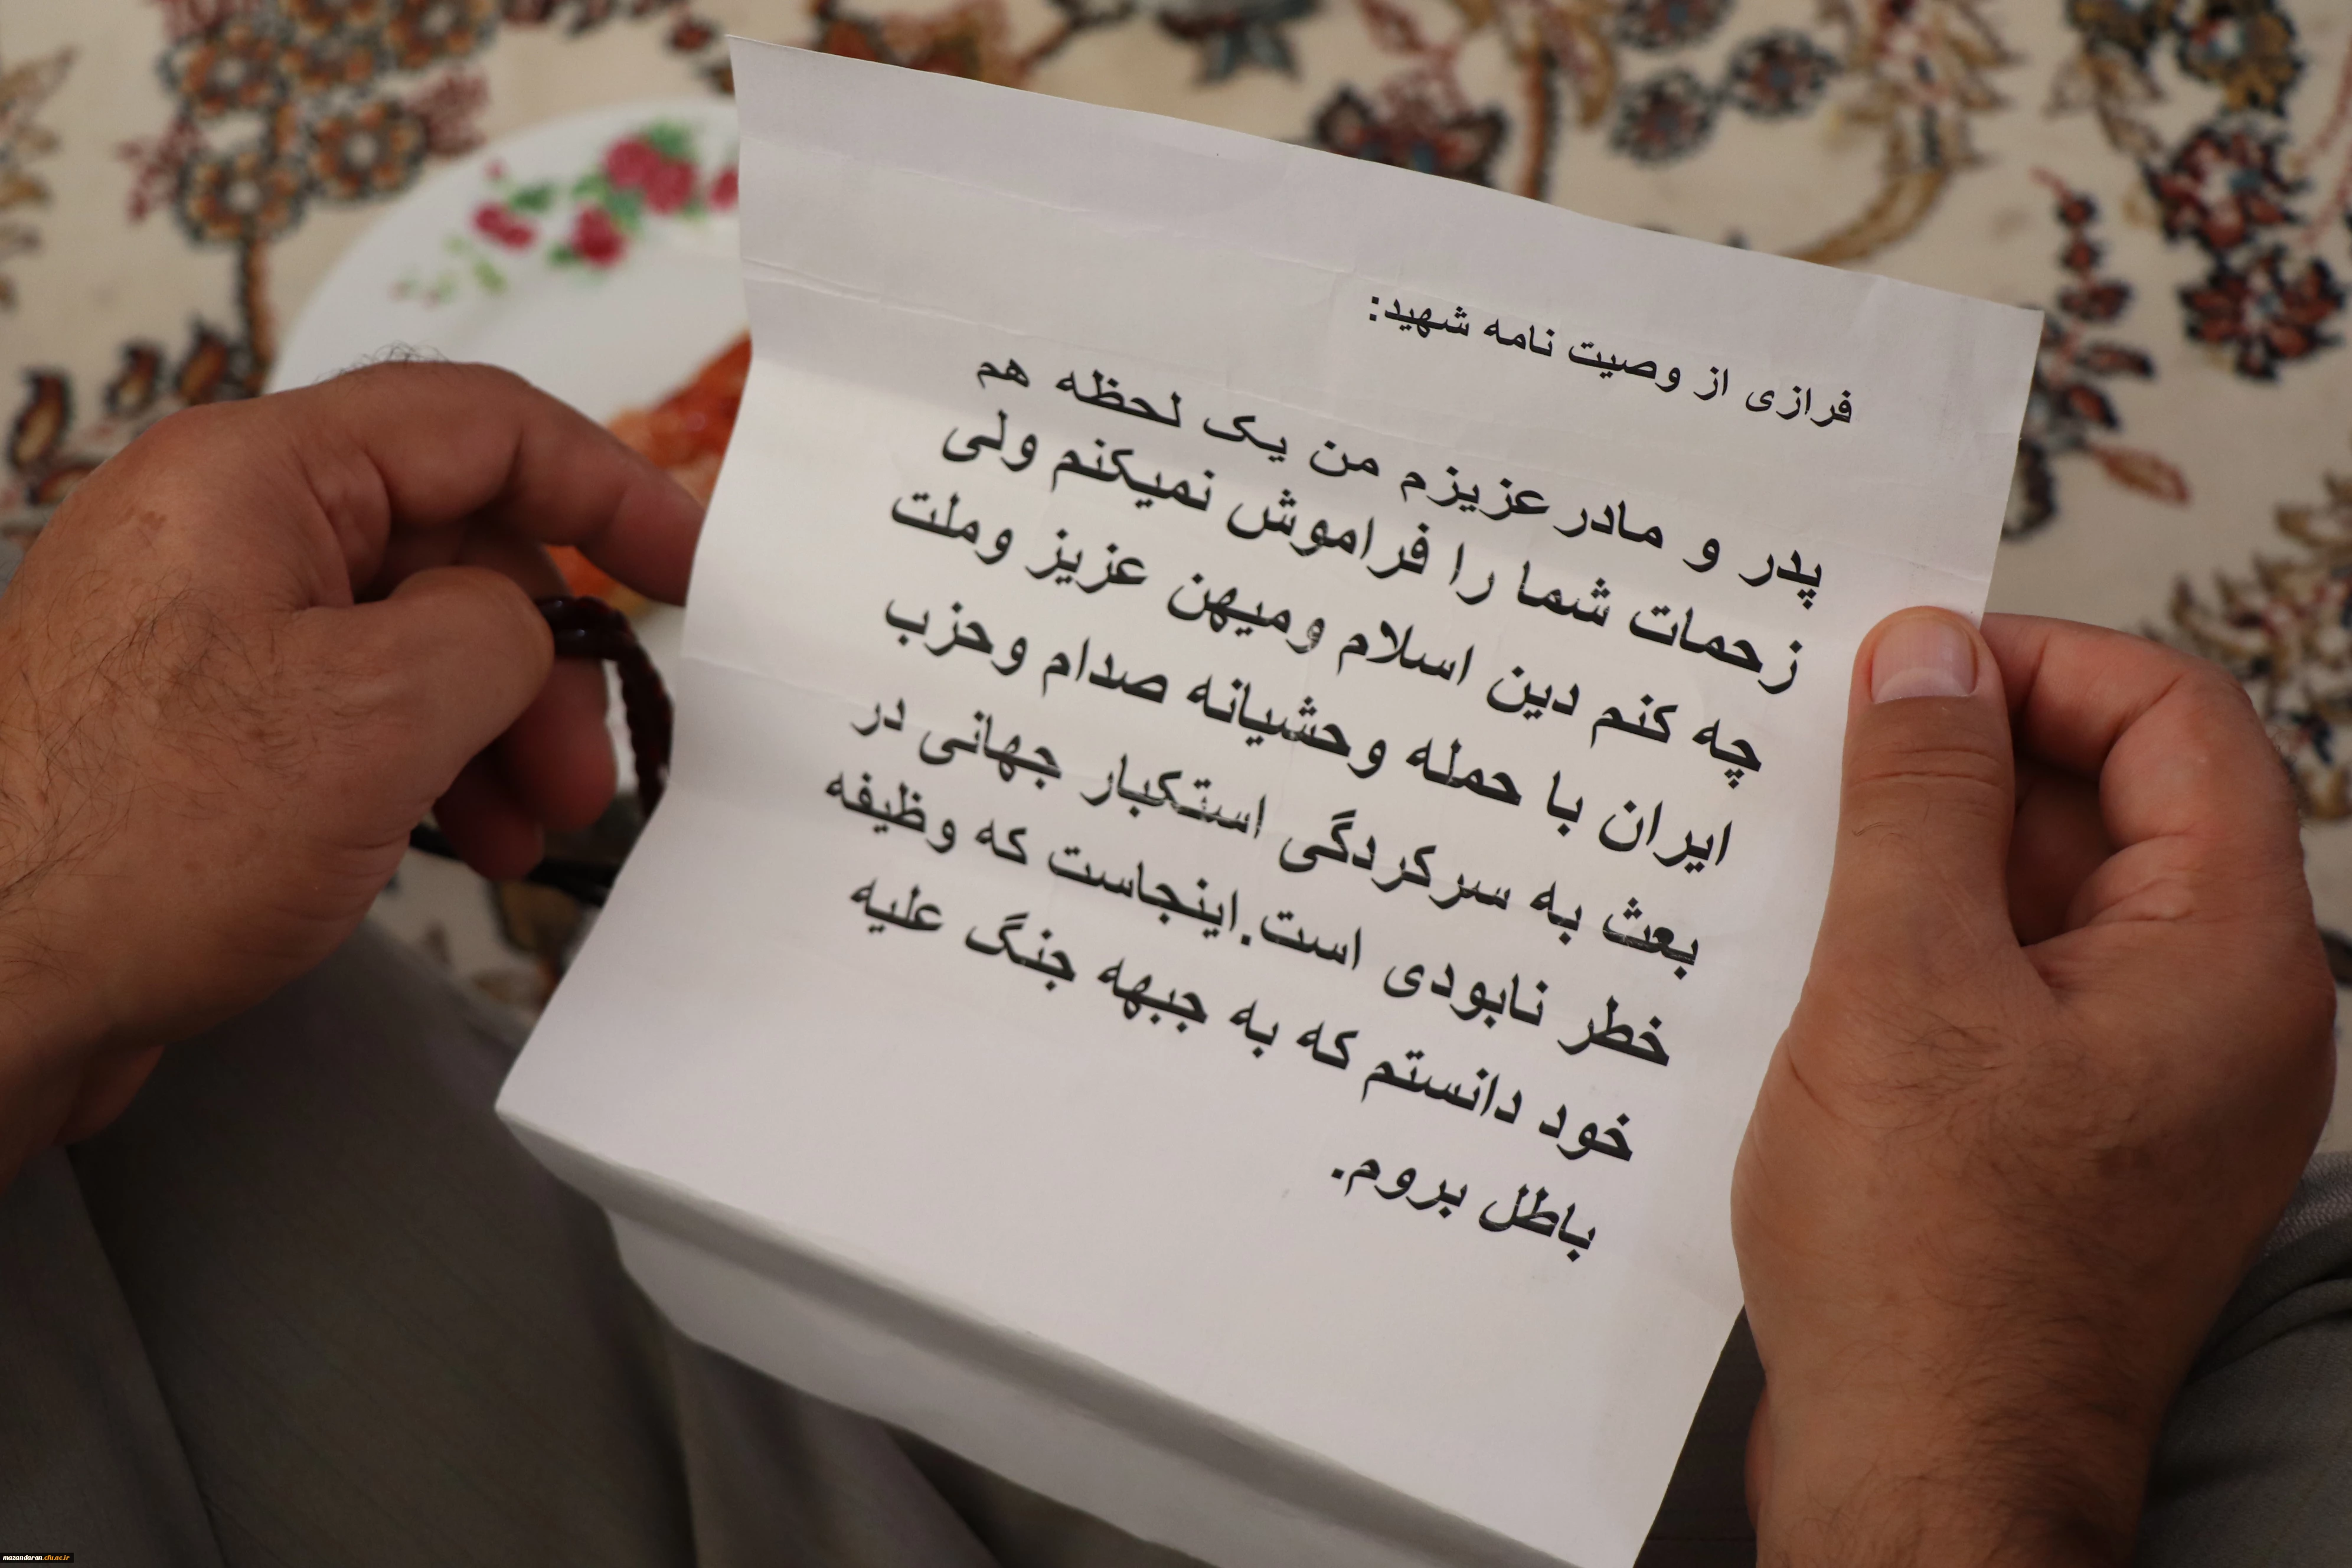 فرازی از وصیت نامه شهید:
پدر و مادر عزیزم من یک لحظه هم
زحمات شما را فراموش نمیکنم ولی
چه کنم دین اسلام ومیهن عزیز وملت
ایران با حمله وحشیانه صدام وحزب
بعث به سرکردگی استکبار جهانی در
خطر نابودی است.اینجاست که وظیفه
خود دانستم که به جبهه جنگ علیه
باطل بروم.
mazandaran.cfu.ac.ir